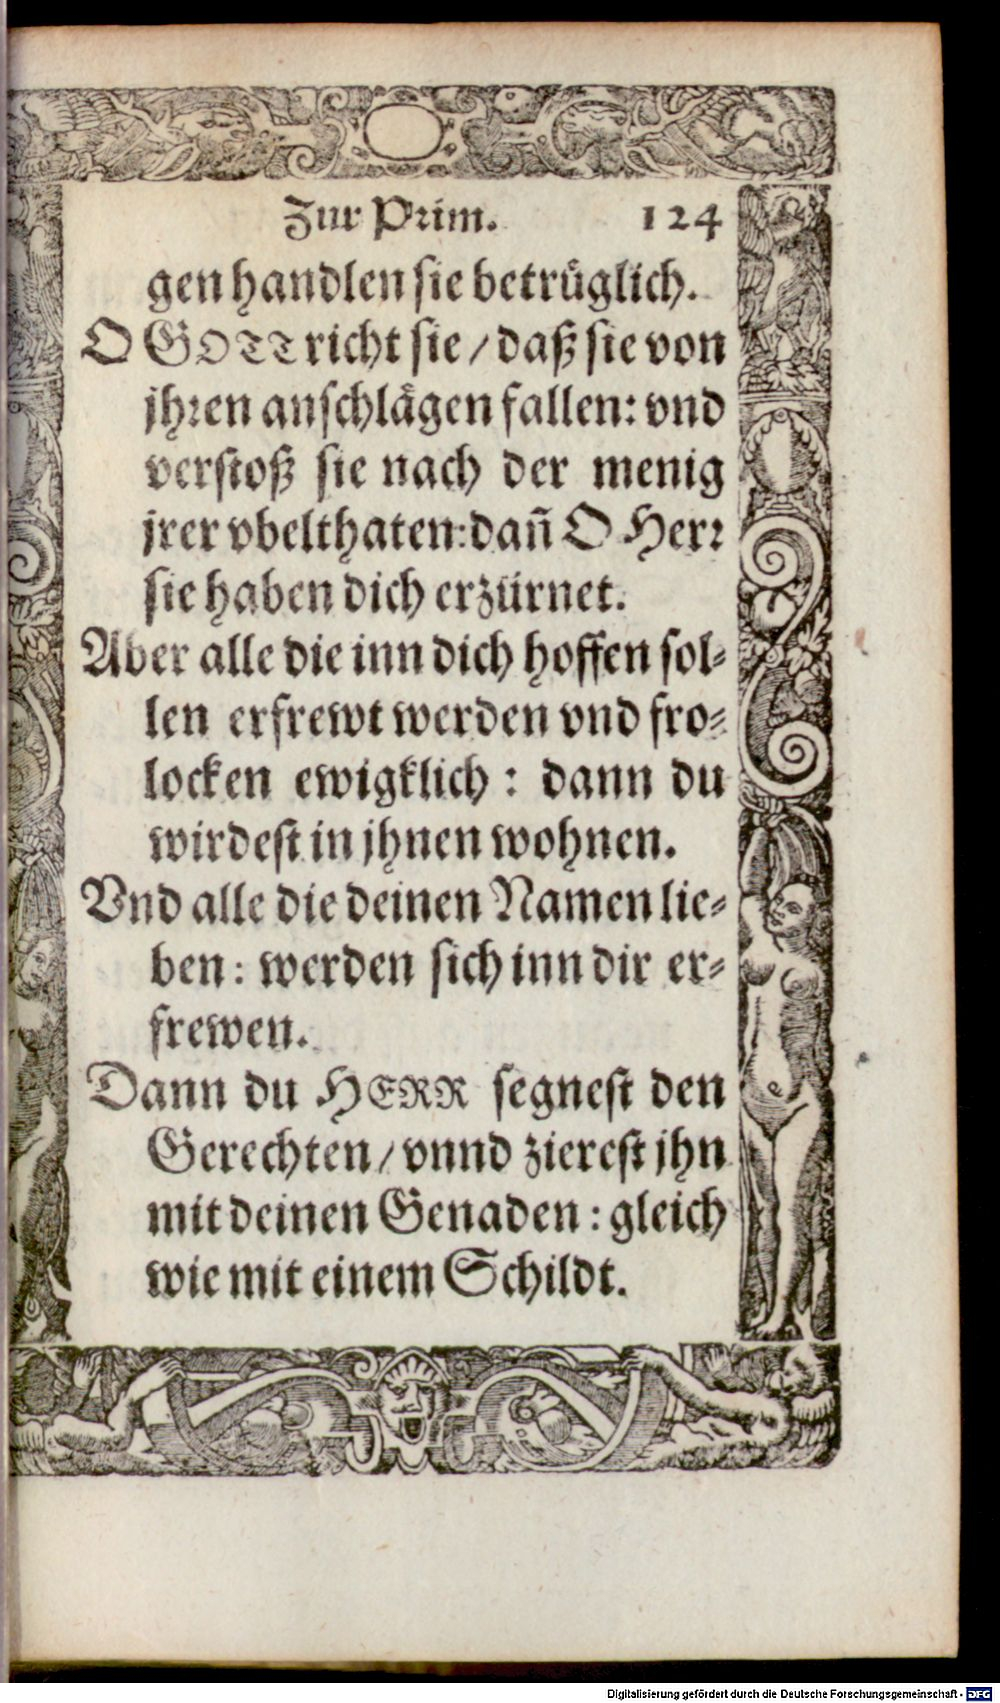 Zur Prim. 124
gen handlen sie betrüglich.
O GOTT richt sie / daß sie von
jhren anschlägen fallen: vnd
verstoß sie nach der menig
jrer vbelthaten: dañ O Herr
sie haben dich erzürnet.
Aber alle die inn dich hoffen sol-
len erfrewt werden vnd fro-
locken ewigklich: dann du
wirdest in jhnen wohnen.
Vnd alle die deinen Namen lie-
ben: werden sich inn dir er-
frewen.
Dann du HERR segnest den
Gerechten / vnnd zierest jhn
mit deinen Genaden: gleich
wie mit einem Schildt.
Digitalisierung gefördert durch die Deutsche Forschungsgemeinschaft - DFG